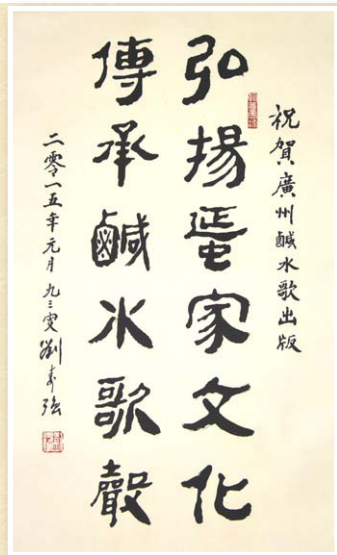 祝賀廣州鹹水歌出版
弘揚蜑家文化
傳承鹹水歌聲
二零一五年元月九三叟劉強